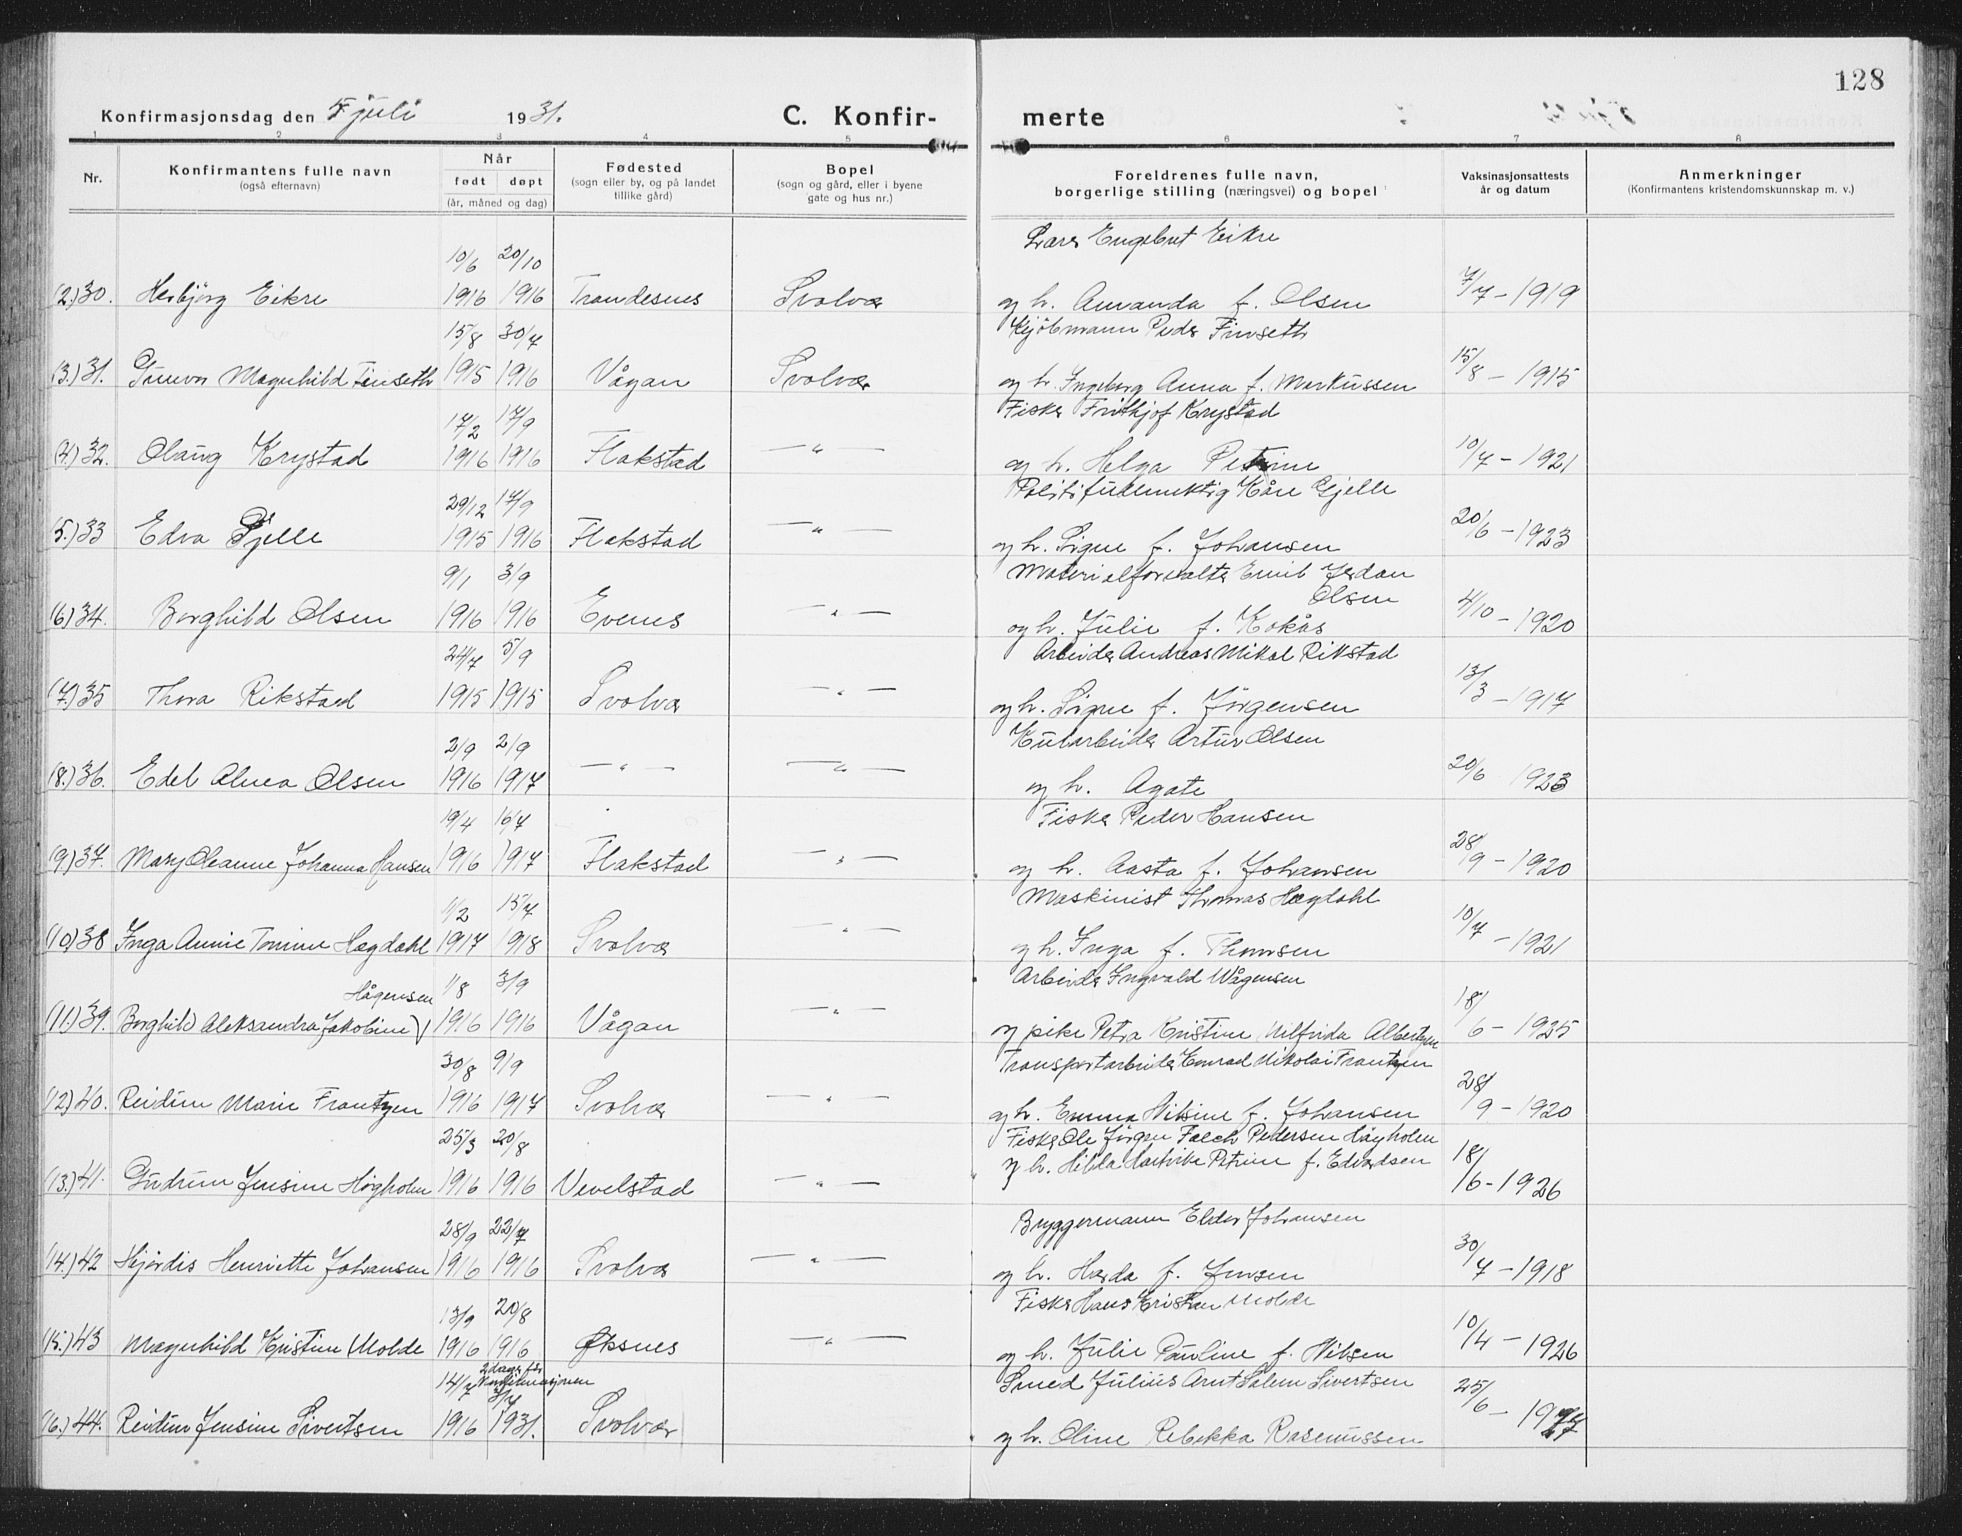 128
Konfirmasjonsdag den 5 juli 1931. C. Konfir- merte
1 2 3 4 5 6 7 8
Nr. Konfirmantens fulle navn (også efternavn) Når født døpt (år, måned og dag) Fødested (sogn eller by, og på landet tillike gård) Bopel (sogn og gård, eller i byene gate og hus nr.) Foreldrenes fulle navn, borgerlige stilling (næringsvei) og bopel Vaksinasjonsattests år og datum Anmerkninger (Konfirmantens kristendomskunnskap m. v.)
10/6 20/10 Lars Engebret Eikre
(2.) 30. Herbjörg Eikre 1916 1916 Trondesnes Svolvær og h. Amanda f. Olsen 7/7 - 1919
15/8 30/7 Kjöbmann Peder Finseth
(3.) 31. Gunvor Magnhild Finseth 1915 1916 Vågan Svolvær og h. Ingeborg Anna f. Markussen 15/8 - 1915
17/2 17/9 Fisker Frithjof Krystad
(4.) 32. Olaug Krystad 1916 1916 Flakstad — " — og h. Helga Petrine 10/7 - 1921
29/12 17/9 Politifuldmektig Kåre Gjelle
(5.) 33 Edva Gjelle 1915 1916 Flakstad — " — og h. Signe f. Johansen 20/6 - 1923
9/1 3/9 Materialforvalter Emil Jordan Olsen
(6) 34. Borghild Olsen 1916 1916 Evenes — " — og h. Julie f. Kokås 4/10 - 1920
24/7 5/9 Arbeider Andreas Mikal Rikstad
(7.) 35 Thora Rikstad 1915 1915 Svolvær — " — og h. Signe f. Jörgensen 13/3 - 1917
2/9 2/9 Kularbeider Artur Olsen
(8.) 36. Edel Alvea Olsen 1916 1917 — " — — " — og h. Agate 20/6 1923
19/4 16/7 Fisker Peder Hansen
(9.) 37. Mary Oleanne Johanna Hansen 1916 1917 Flakstad — " — og h. Aasta f. Johansen 28/9 - 1920
1/2 15/7 Maskinist Thomas Hægdahl
(10) 38 Inga Annie Tomine Hægdahl 1917 1918 Svolvær — " — og h. Inga f. Thomsen 10/7 - 1921
Hågensen 1/8 3/9 Arbeider Ingvald Wågensen
(11.) 39. Borghild Aleksandra Jakobine 1916 1916 Vågan — " — og pike Petra Kristine Vilfrida Albertsen 18/6 - 1925
30/8 9/9 Transportarbeider Konrad Nikolai Frantzen
(12) 40. Reidun Marie Frantzen 1916 1917 Svolvær — " — og h. Emma Nilsine f. Johansen 28/9 - 1920
25/3 20/8 Fisker Ole Jörgen Falch Pedersen Höyholm
(13.) 41. Gudrun Jensine Höyholm 1916 1916 Vevelstad — " — og h. Hilda Hartvike Petrine f. Edvardsen 18/6 - 1926
28/9 22/7 Bryggermann Elder Johansen
(14.) 42 Hjördis Henriette Johansen 1916 1916 Svolvær — " — og h. Harda f. Jensen 30/7 - 1918
13/9 20/8 Fisker Hans Kristian Molde
(15.) 43 Magnhild Kristine Molde 1916 1916 Øksnes — " — og h. Julie Pauline f. Nilsen 10/4 - 1926
14/7 2 dager før konfirmasjonen 3/7 Smed Julius Arnt Salem Sivertsen
(16.) 44. Reidun Jensine Sivertsen 1916 1931. Svolvær og h. Oline Rebekka Rasmussen 25/6 - 1927